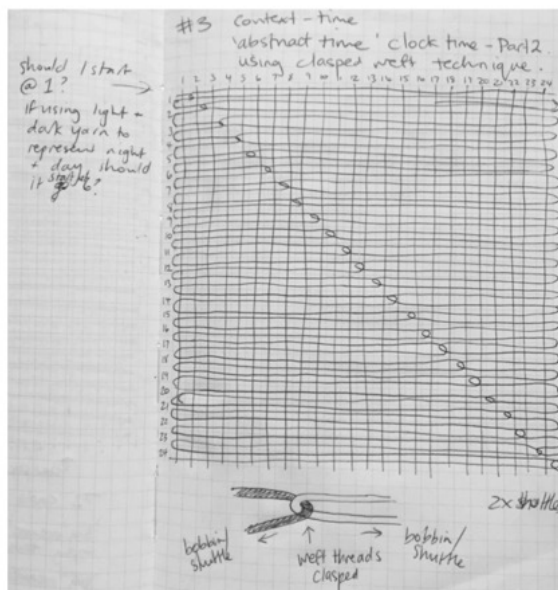 #3 Context - time
'abstract time' clock time - Part 2
using clasped weft technique.
should I start
@ 1?
If using light +
dark yarn to
represent night
+ day should
it start @ 6?
1 2 3 4 5 6 7 8 9 10 11 12 13 14 15 16 17 18 19 20 21 22 23 24
1
2
3
4
5
6
7
8
9
10
11
12
13
14
15
16
17
18
19
20
21
22
23
24
2x shuttle
bobbin/
shuttle
weft threads
clasped
bobbin/
shuttle